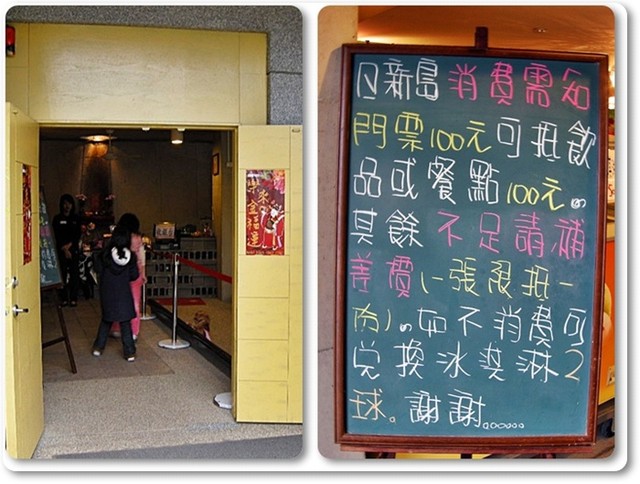 日新島消費需知
門票100元可抵飲
品或餐點100元。
其餘不足請補
差價(一張限抵一
份)。如不消費可
兌換冰淇淋2
球。謝謝......